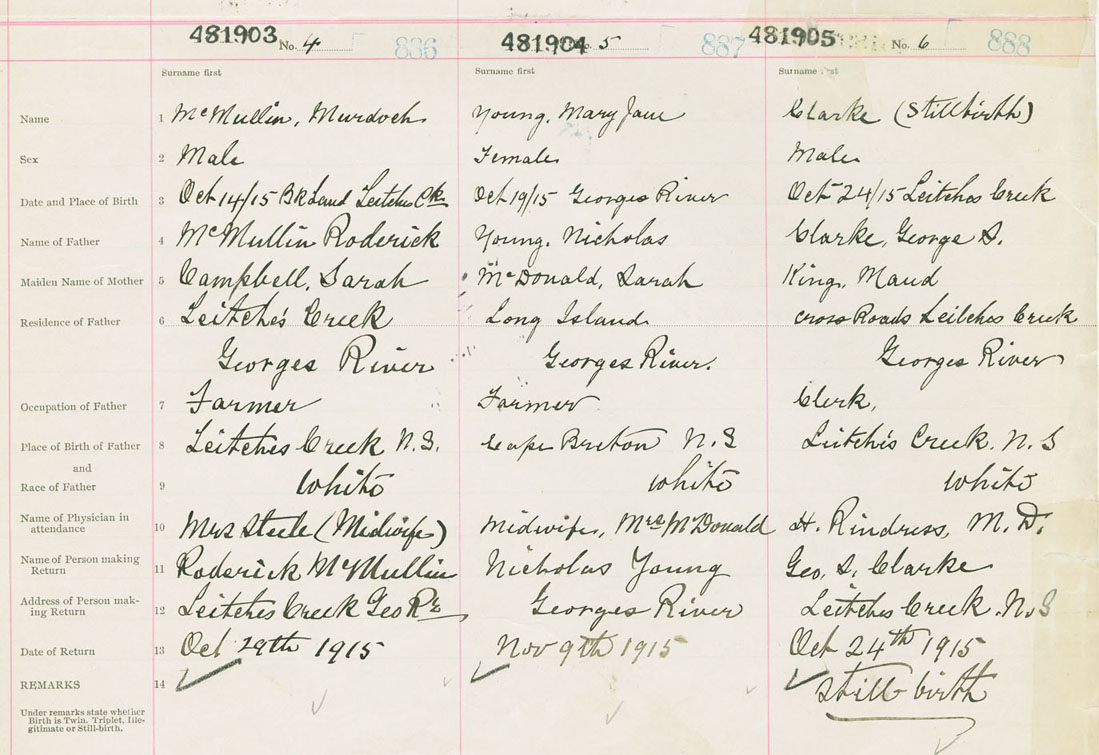 481903 No. 4 886 481904 No. 5 887 481905 No. 6 888
Surname first Surname first Surname first
Name 1 McMullin, Murdoch Young, Mary Jane Clarke (Stillbirth)
Sex 2 Male Female Male
Date and Place of Birth 3 Oct 14/15 Leitches Ck Oct 19/15 Georges River Oct 24/15 Leitches Creek
Name of Father 4 McMullin Roderick Young, Nicholas Clarke, George S.
Maiden Name of Mother 5 Campbell, Sarah McDonald, Sarah King, Maud
Residence of Father 6 Leitche's Creek Long Island Cross Roads Leitches Creek
Georges River Georges River. Georges River
Occupation of Father 7 Farmer Farmer Clerk,
Place of Birth of Father 8 Leitches Creek N.S. Cape Breton N.S Leitche's Creek. N.S
and
Race of Father 9 White White White
Name of Physician in
attendance 10 Mrs Steele (Midwife) Midwife, Mrs McDonald H. Rindress, M.D.
Name of Person making
Return 11 Roderick McMullin Nicholas Young Geo. S. Clarke
Address of Person mak-
ing Return 12 Leitches Creek Geo Rr Georges River Leitches Creek. N.S
Date of Return 13 Oct 29th 1915 Nov 9th 1915 Oct 24th 1915
REMARKS 14 Still-birth
Under remarks state whether
Birth is Twin, Triplet, Ille-
gitimate or Still-birth.